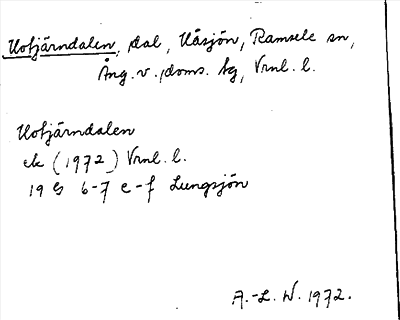 Uotjärndalen, dal, Uåsjön, Ramsele sn,
Ång. v. doms. tg, Vrnl. l.
Uotjärndalen
ek (1972) Vrnl. l.
19 G 6-7 e-f Lungsjön
A.-L. W. 1972.